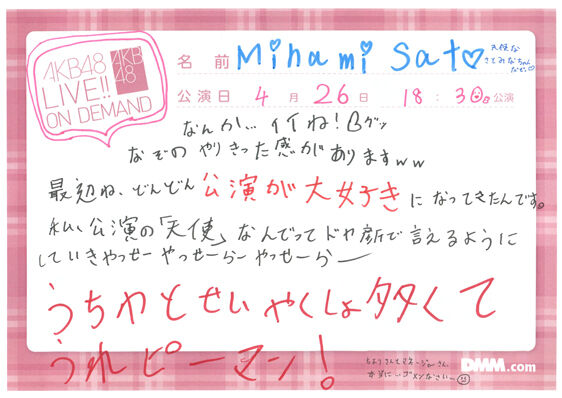 AKB48
LIVE!!
ON DEMAND
AKB
48
名前 Minami Sato♡
天使な
さとみなちゃん
だぞ♡
公演日 4月26日 18:30公演
なんか… イイね! Bグッ
なぞの やりきった感がありますww
最近ね、どんどん 公演が大好き になってきたんです。
私、公演の「天使」なんでってドヤ顔で言えるように
していきやっせー やっせーらー やっせーらー
うちわとせいやくしょ多くて
うれピーマン!
DMM.com